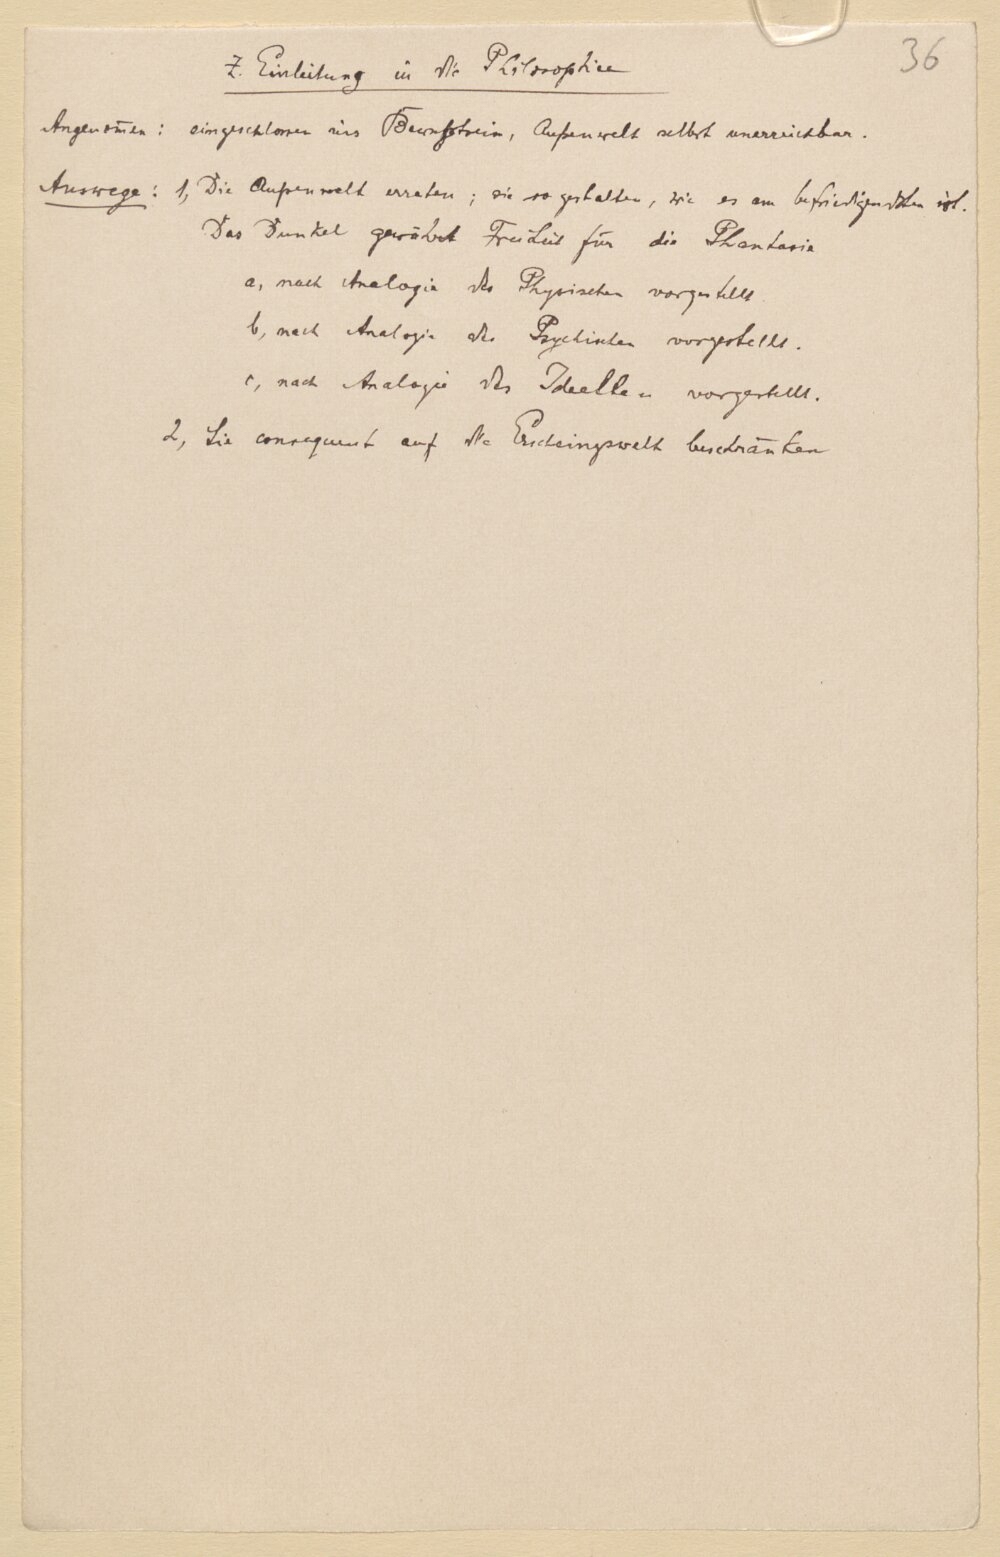 36
Z. Einleitung in die Philosophie
Angenom̄en: eingeschlossen ins Bewußtsein, Außenwelt selbst unerreichbar.
Auswege: 1, Die Außenwelt erraten; sie so gestalten, wie es am befriedigendsten ist.
Das Dunkel gewährt Freiheit für die Phantasie
a, nach Analogie des Physischen vorgestellt
b, nach Analogie des Psychischen vorgestellt.
c, nach Analogie des Ideellen vorgestellt.
2, Sie consequent auf die Erscheingswelt beschränken